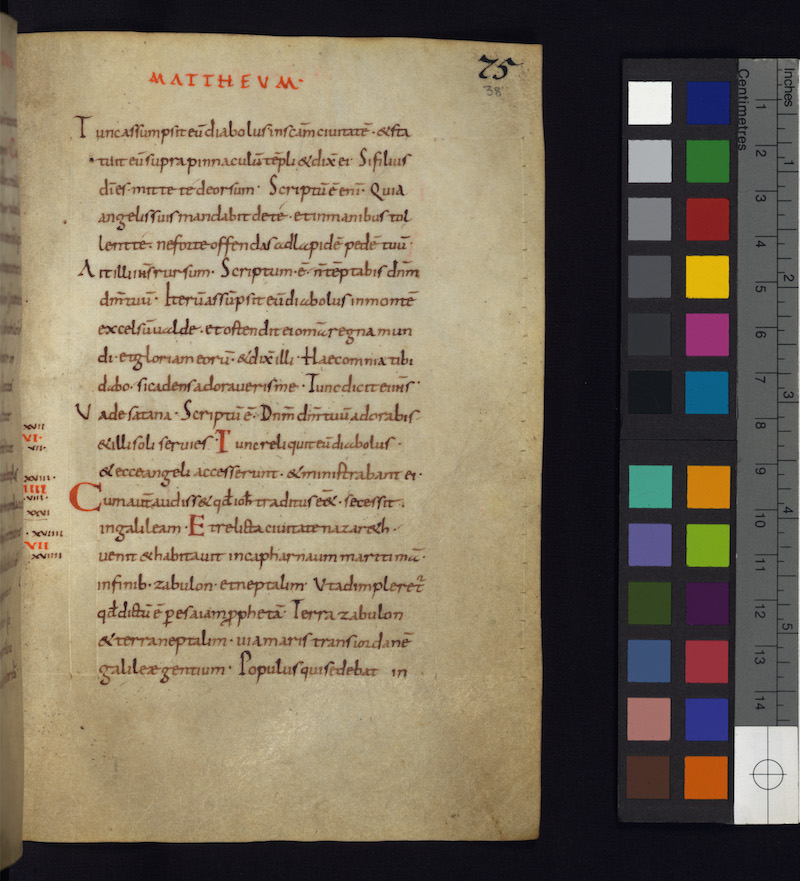 MATTHEUM·
75
38
Tunc assumpsit eū diabolus in scām civitatē · & sta
tuit eū supra pinnaculū tēpli & dix̄ ei Si filius
dī es · mitte te deorsum · Scriptū ē enī · Quia
angelis suis mandabit de te · et in manibus tol
lent te · ne forte offendas ad lapidē pedē tuū·
Ait illi ih̄s rursum · Scriptum · ē · n̄ tēptabis dn̄m
dm̄ tuū · Iterū assūpsit eū diabolus in montē
excelsū valde · et ostendit ei omīa regna mun
di · et gloriam eorū · & dix̄ illi · Haec omnia tibi
dabo · si cadens adoraveris me · Tunc dicit ei ih̄s·
Vade satana · Scriptū ē · Dnm̄ dm̄ tuū adorabis
& illi soli servies · Tunc reliquit eū diabolus ·
& ecce angeli accesserunt · & ministrabant ei ·
Cum aut̄ audiss& qd̄ ioh̄ traditus ēe& · secessit
in galileam · Et relicta civitate nazar&h ·
venit & habitavit in capharnaum maritimā ·
in finib · zabulon · et neptalim Ut adimpleret̄
qd̄ dictū ē p esaiam pphetā · Terra zabulon
& terra neptalim · via maris trans iordanē
galileæ gentium · Populus qui sedebat in
XVII
VI·
VII·
XVIII·
IIII
VIII·
XXVI
XVIIII
VII
XVIIII
Centimetres
Inches
1
2
3
4
5
6
7
8
9
10
11
12
13
14
1
2
3
4
5